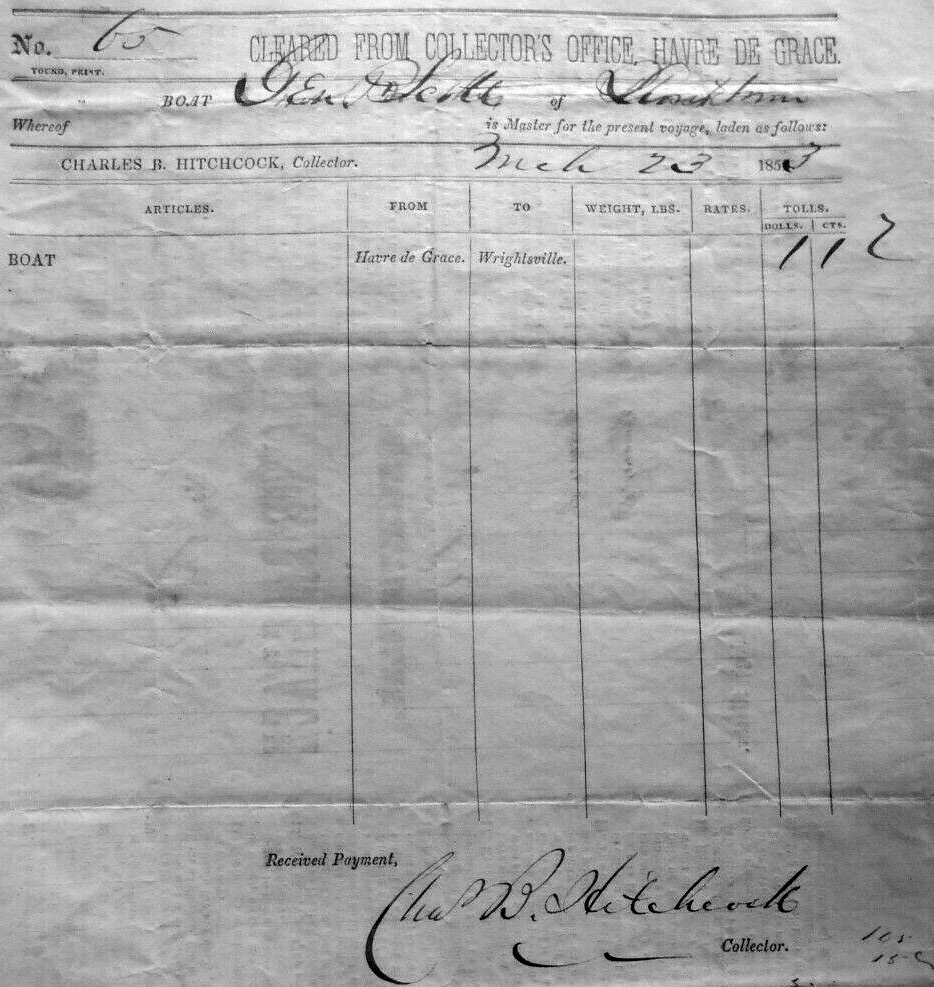 No. 65 CLEARED FROM COLLECTOR'S OFFICE, HAVRE DE GRACE.
YOUNG, PRINT.
BOAT Gen. Scott of
Whereof is Master for the present voyage, laden as follows:
CHARLES B. HITCHCOCK, Collector. Mch 23 1853
ARTICLES. FROM TO WEIGHT, LBS. RATES. TOLLS.
DOLLS. CTS.
BOAT Havre de Grace. Wrightsville. 1 12
Received Payment,
Chas B. Hitchcock
Collector.